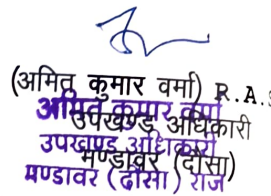 (अमित कुमार वर्मा) R.A.S
अमित कुमार वर्मा
उपखण्ड अधिकारी
उपखण्ड अधिकारी
मण्डावर (दौसा)
मण्डावर (दौसा) राज